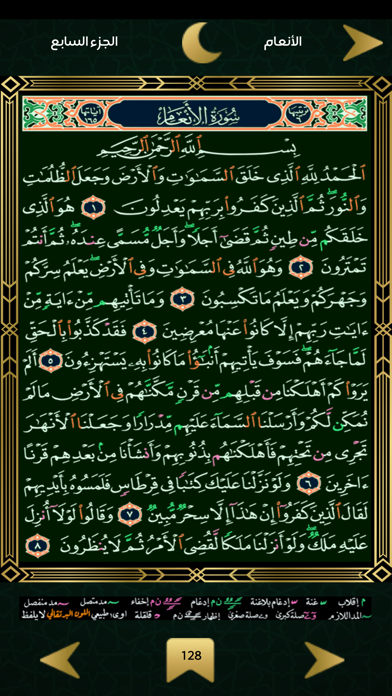 الأنعام
الجزء السابع
ترتيبها ٦
سُورَةُ الأَنْعَامِ
آياتها ١٦٥
بِسْمِ ٱللَّهِ ٱلرَّحْمَٰنِ ٱلرَّحِيمِ
ٱلْحَمْدُ لِلَّهِ ٱلَّذِى خَلَقَ ٱلسَّمَٰوَٰتِ وَٱلْأَرْضَ وَجَعَلَ ٱلظُّلُمَٰتِ
وَٱلنُّورَ ۖ ثُمَّ ٱلَّذِينَ كَفَرُوا۟ بِرَبِّهِمْ يَعْدِلُونَ ١ هُوَ ٱلَّذِى
خَلَقَكُم مِّن طِينٍ ثُمَّ قَضَىٰٓ أَجَلًا ۖ وَأَجَلٌ مُّسَمًّى عِندَهُۥ ۖ ثُمَّ أَنتُمْ
تَمْتَرُونَ ٢ وَهُوَ ٱللَّهُ فِى ٱلسَّمَٰوَٰتِ وَفِى ٱلْأَرْضِ ۖ يَعْلَمُ سِرَّكُمْ
وَجَهْرَكُمْ وَيَعْلَمُ مَا تَكْسِبُونَ ٣ وَمَا تَأْتِيهِم مِّنْ ءَايَةٍ مِّنْ
ءَايَٰتِ رَبِّهِمْ إِلَّا كَانُوا۟ عَنْهَا مُعْرِضِينَ ٤ فَقَدْ كَذَّبُوا۟ بِٱلْحَقِّ
لَمَّا جَآءَهُمْ ۖ فَسَوْفَ يَأْتِيهِمْ أَنۢبَٰٓؤُا۟ مَا كَانُوا۟ بِهِۦ يَسْتَهْزِءُونَ ٥ أَلَمْ
يَرَوْا۟ كَمْ أَهْلَكْنَا مِن قَبْلِهِم مِّن قَرْنٍ مَّكَّنَّٰهُمْ فِى ٱلْأَرْضِ مَا لَمْ
نُمَكِّن لَّكُمْ وَأَرْسَلْنَا ٱلسَّمَآءَ عَلَيْهِم مِّدْرَارًا وَجَعَلْنَا ٱلْأَنْهَٰرَ
تَجْرِى مِن تَحْتِهِمْ فَأَهْلَكْنَٰهُم بِذُنُوبِهِمْ وَأَنشَأْنَا مِنۢ بَعْدِهِمْ قَرْنًا
ءَاخَرِينَ ٦ وَلَوْ نَزَّلْنَا عَلَيْكَ كِتَٰبًا فِى قِرْطَاسٍ فَلَمَسُوهُ بِأَيْدِيهِمْ
لَقَالَ ٱلَّذِينَ كَفَرُوٓا۟ إِنْ هَٰذَآ إِلَّا سِحْرٌ مُّبِينٌ ٧ وَقَالُوا۟ لَوْلَآ أُنزِلَ
عَلَيْهِ مَلَكٌ ۖ وَلَوْ أَنزَلْنَا مَلَكًا لَّقُضِىَ ٱلْأَمْرُ ثُمَّ لَا يُنظَرُونَ ٨
م إقلاب غنة إدغام بلاغنة ن م إدغام ن م إخفاء مد متصل مد منفصل
المد اللازم صلة كبرى صلة صغرى إظهار ن م قلقلة أوى، طبيعي اللون البرتقالي لا يلفظ
128